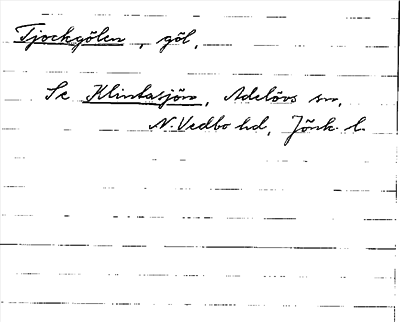 Tjockgölen, göl,
Se Klintasjön, Adelövs sn,
N. Vedbo hd, Jönk. l.